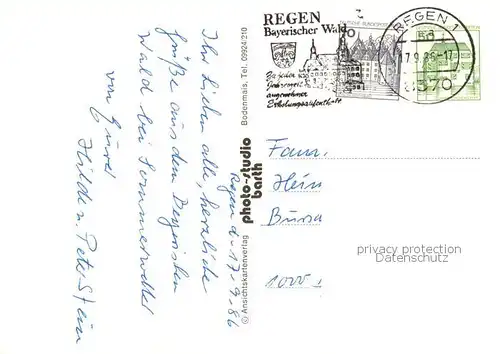 Regen d. 17.9.86
Ihr Lieben alle, herzliche
Grüße aus dem Bayrischen
Wald bei Sommerwetter
von Eurer
Hilde u. Peter Stein
© Ansichtskartenverlag
photo-studio
barth
Bodenmais, Tel. 09924/210
REGEN
Bayerischer Wald
Zu jeder
Jahreszeit
angenehmer
Erholungsaufenthalt
DEUTSCHE BUNDESPOST
REGEN 1
17.9.86-17
8370
Fam.
Hein
privacy protection
Datenschutz